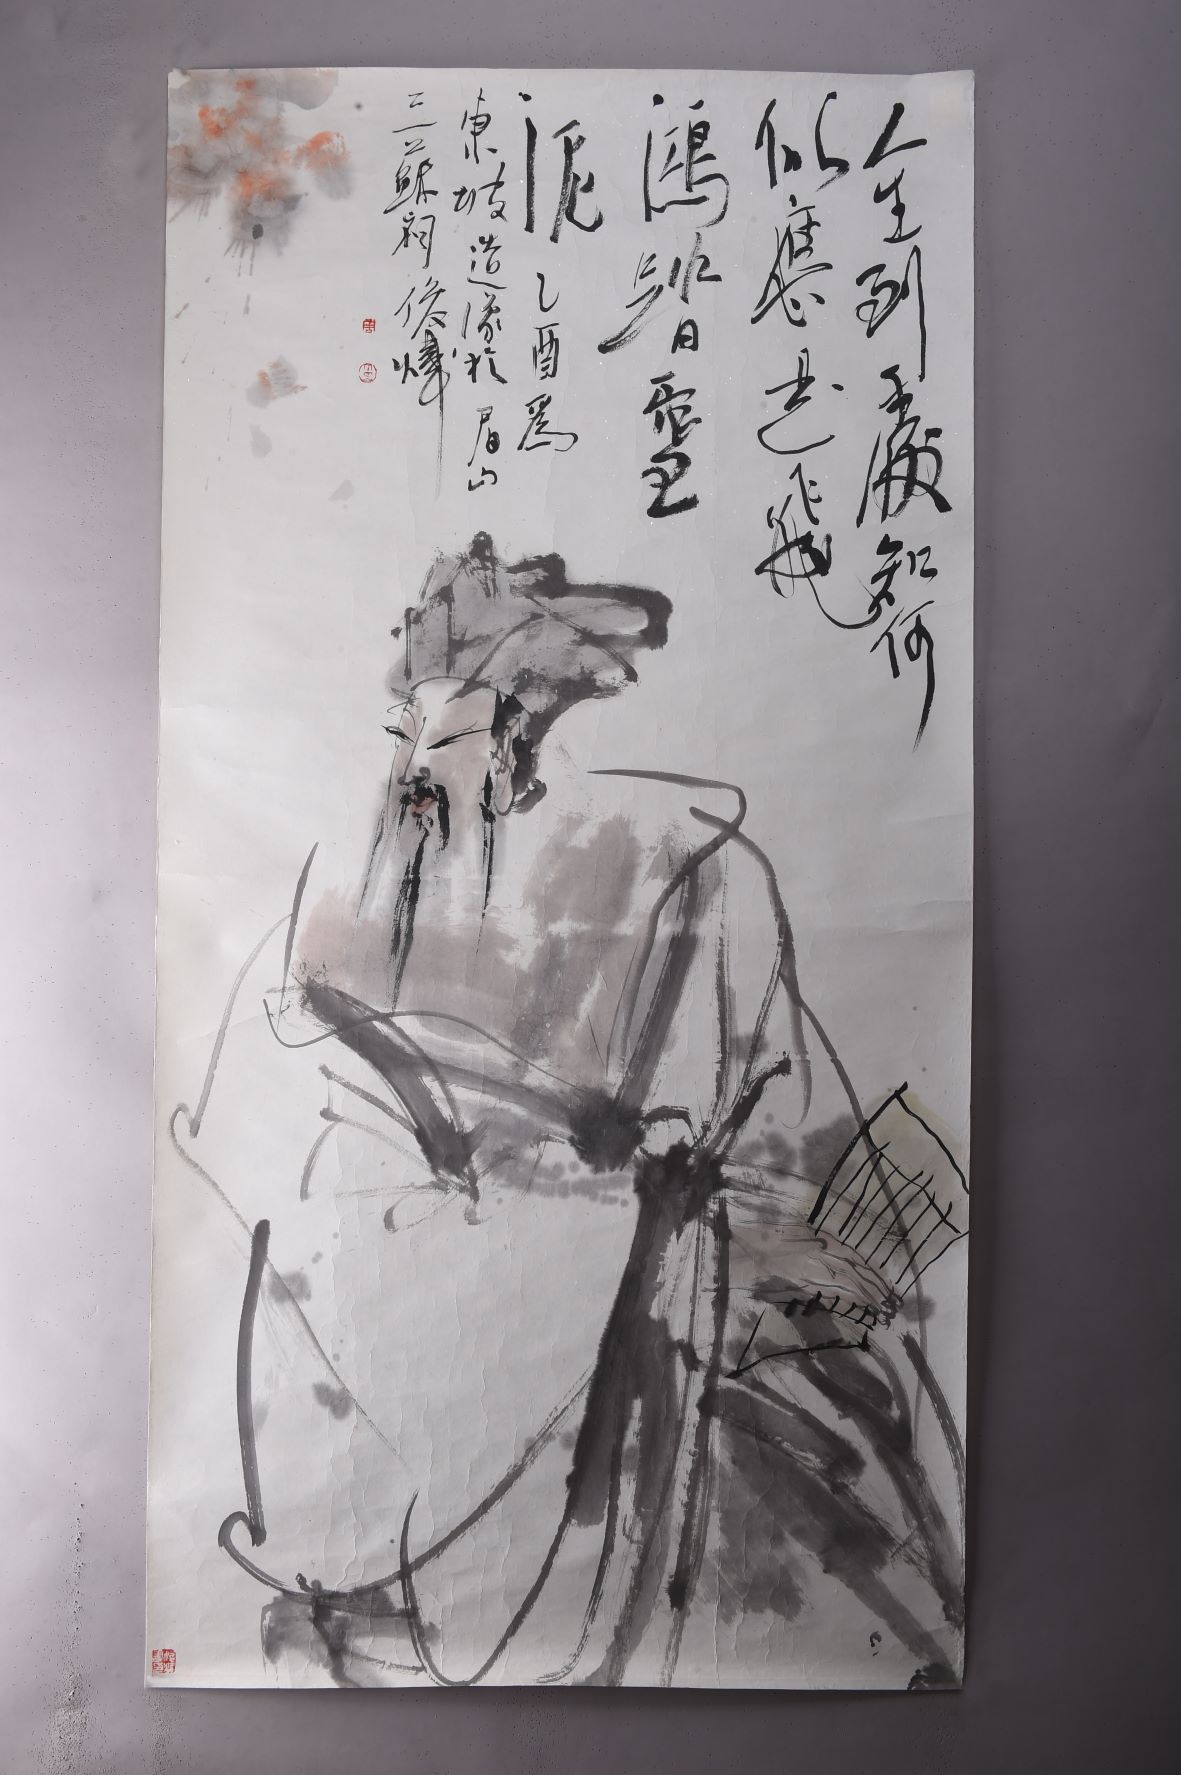 人生到处知何
似應是飛
鴻踏雪
泥乙酉爲
東坡造像於眉山
三蘇祠